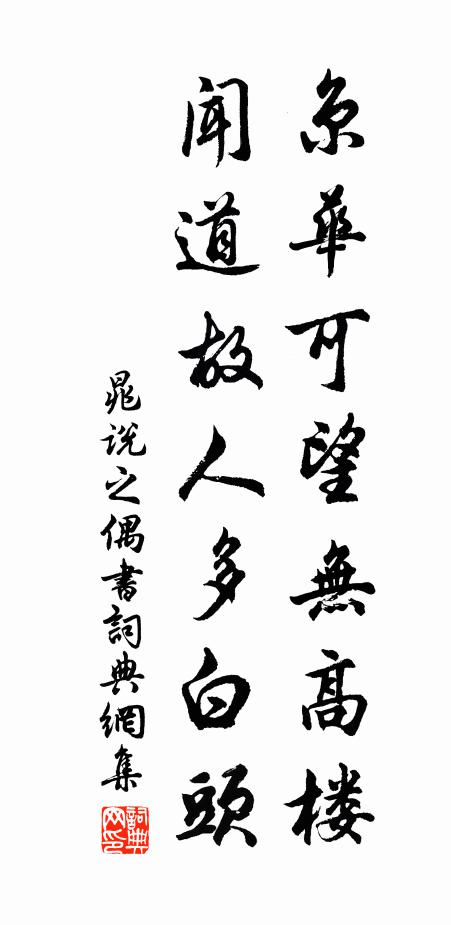 京華可望無高楼
聞道故人多白頭
晁説之偶書詞典網集
詞典网印